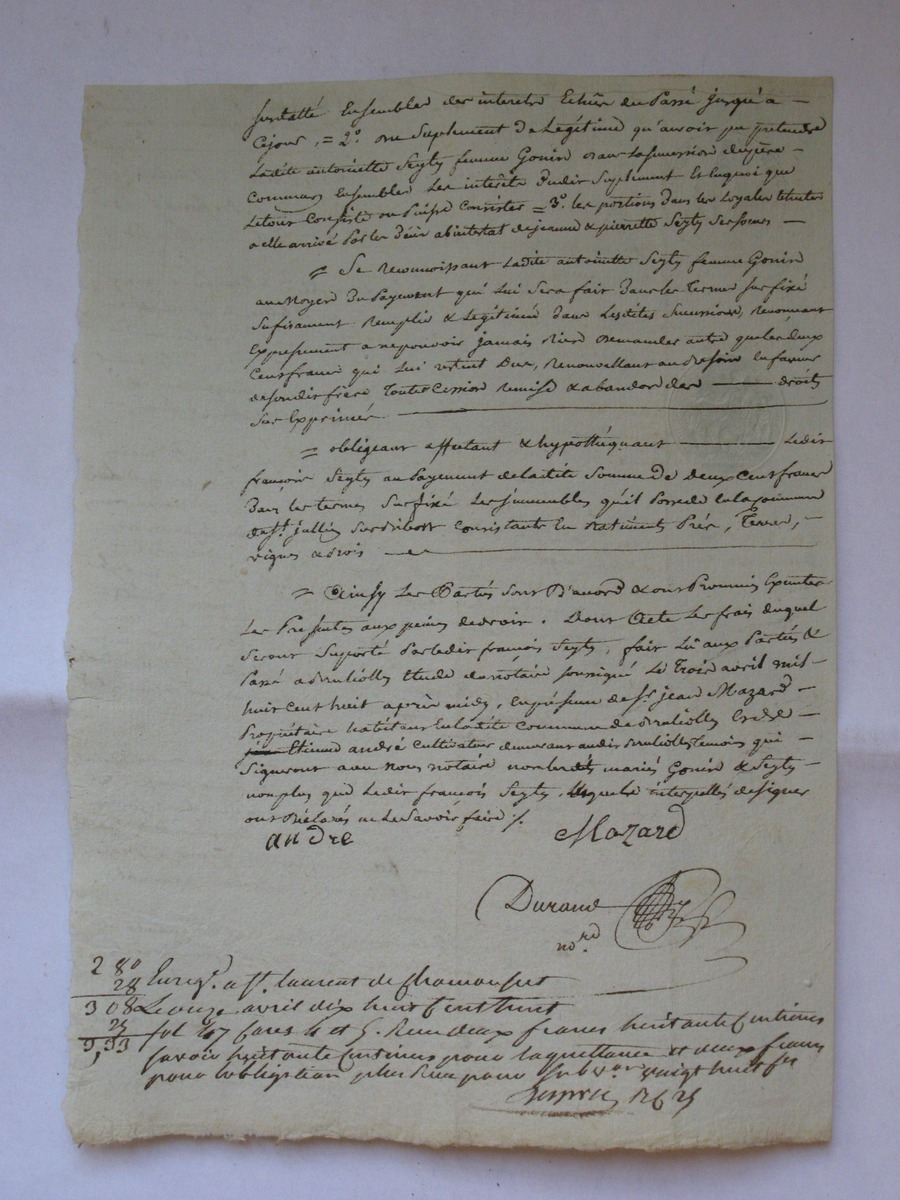 Ensembles des interets Echûs du Passé jusqu'a -
Cejour, = 2° un Suplement de Légitime qu'auroit pu pretendre
Ladite antoinette Seyty femme Gonin dans la succession du père -
Commun, Ensembles Les interêts dudit Suplement Et En quoi que
Letout Consiste ou Puisse Consister = 3° les portions dans les
a elle arrivé Par le décès abintestat de jeanne & pierrette Seyty Ses soeurs -
= Se reconnoissant Ladite antoinette Seyty femme Gonin
au Moyen du Payement qui Lui Sera fait dans les Termes sus fixé
Sufisament remplie & Légitimée dans Lesdites Successions, renonçant
Expressément a ne pouvoir jamais Rien demander autre que les deux
Cent francs qui Lui restent Dus, renouvellant au Besoin En faveur
de sondit frère Toutes Cession remise & abandon des droits
Sus Exprimés.
= obligeant affectant & hypothéquant Ledit
françois Seyty au Payement de Ladite Somme de deux Cent francs
Dans les termes Sus fixé Les jmmeubles qu'il Possede en la Commune
de St. jullien Consistants En Batiments Prés, Terres, -
vignes & bois
= Ainsy Les Partiés Sont D'acord & ont Promis Executer
Les Presentes aux peines de droit. Dont Acte Les frais duquel
Seront Suporté Par Ledit françois Seyty, fait Lû aux Partiés &
Passé a Etude du notaire soussigné Le Trois avril mil -
huit Cent huit après midy, En présence de Sr. jean Mazard -
Propriétaire habitant En Ladite Commune de Et de -
Etienne andré Cultivateur demeurant audit temoins qui -
Signeront avec Nous notaire non lesdits mariés Gonin & Seyty -
non plus que Ledit françois Seyty, Lesquels interpellés de signer
ont Déclarés ne Le Savoir faire /.
andre Mazard
Durand
nore
2 80 Enregé. a St. laurent de Chamousset
28
3 08 Le onze avril dix huit Cent huit
25 fol 47 Cases 4 et 5. Reçu deux francs huitante Centimes
3,33 savoir huitante Centimes pour la quittance et deux francs
pour l'obligation plus Reçu pour subvon. vingt huit